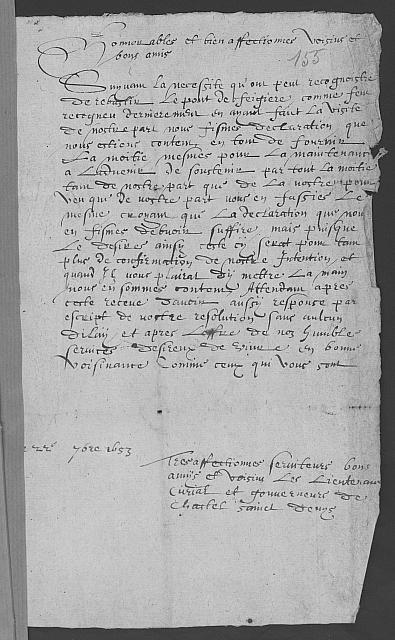 Honnorables et bien affectionnes voisins et
bons amis
155
Suyvant la necessité qu on peut recognoistre
de rebastir le pont de feigiere comme feu
recogneu dernierement en ayant fait la visite
de nostre part nous fismes declaration que
nous estions content en tout de fournir
la moitie mesmes pour la maintenance
a l advenir de soustenir par tout la moitie
tant de nostre part que de la vostre pour
veu que de vostre part vous en fassies le
mesme croyant que la declaration que nous
en fismes debvoir suffire, mais puisque
le desires ainsy ceste cy serat pour tant
plus de confirmation de nostre intention et
quand il vous plairat d'y mettre la main
nous en sommes contents Attendant apres
ceste receue d'avoir aussy response par
escript de vostre resolution sans aulcun
dilay et apres l'offre de noz humbles
services desireux de vivre en bonne
voisinance comme ceux qui vous sont
22e 7bre 1653
Tres affectionnes serviteurs bons
amys et voisins les Lieutenant
Curial et gouverneurs de
Chastel sainct Denys